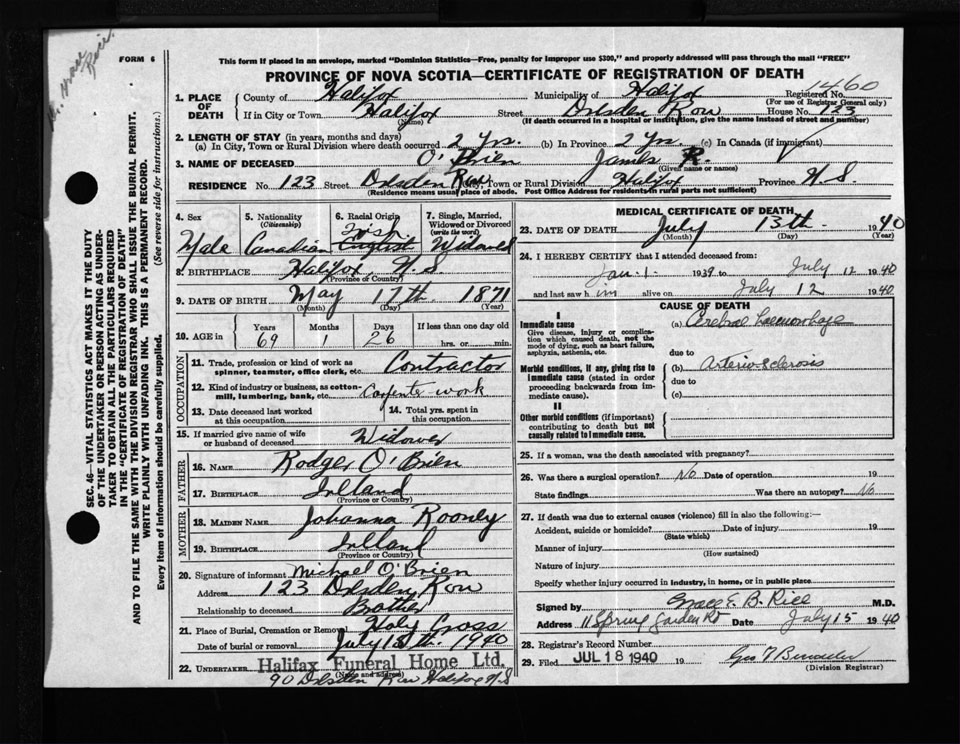 Grace Rice.
FORM 6
This form if placed in an envelope, marked "Dominion Statistics—Free, penalty for improper use $300," and properly addressed will pass through the mail "FREE"
PROVINCE OF NOVA SCOTIA—CERTIFICATE OF REGISTRATION OF DEATH
SEC. 46—VITAL STATISTICS ACT MAKES IT THE DUTY
OF THE UNDERTAKER OR PERSON ACTING AS UNDER-
TAKER TO OBTAIN ALL THE PARTICULARS REQUIRED
IN THE "CERTIFICATE OF REGISTRATION OF DEATH"
AND TO FILE THE SAME WITH THE DIVISION REGISTRAR WHO SHALL ISSUE THE BURIAL PERMIT.
WRITE PLAINLY WITH UNFADING INK. THIS IS A PERMANENT RECORD.
Every item of Information should be carefully supplied. (See reverse side for instructions.)
1. PLACE OF DEATH
County of Halifax Municipality of Halifax Registered No. 1460
(For use of Registrar General only)
If in City or Town Halifax Street Dresden Row House No. 123
(Name) (If death occurred in a hospital or institution, give the name instead of street and number)
2. LENGTH OF STAY (in years, months and days)
(a) In City, Town or Rural Division where death occurred 2 Yrs. (b) In Province 2 Yrs. (c) In Canada (if immigrant)
3. NAME OF DECEASED O'Brien James R.
(Given name or names)
RESIDENCE No. 123 Street Dresden Row City, Town or Rural Division Halifax Province N.S.
(Residence means usual place of abode. Post Office Address for residents in rural parts not sufficient)
4. Sex Male
5. Nationality (Citizenship) Canadian
6. Racial Origin Irish English
7. Single, Married, Widowed or Divorced (write the word) Widowed
8. BIRTHPLACE Halifax, N.S.
(Province or Country)
9. DATE OF BIRTH May 17th. 1871
(Month) (Day) (Year)
10. AGE in Years 69 Months 1 Days 26 If less than one day old hrs. or min.
OCCUPATION
11. Trade, profession or kind of work as spinner, teamster, office clerk, etc. Contractor
12. Kind of industry or business, as cotton-mill, lumbering, bank, etc. Carpente work
13. Date deceased last worked at this occupation
14. Total yrs. spent in this occupation
15. If married give name of wife or husband of deceased Widower
FATHER
16. NAME Rodger O'Brien
17. BIRTHPLACE Ireland
(Province or Country)
MOTHER
18. MAIDEN NAME Johanna Rooney
19. BIRTHPLACE Ireland
(Province or Country)
20. Signature of informant Michael O'Brien
Address 123 Dresden Row
Relationship to deceased Brother
21. Place of Burial, Cremation or Removal Holy Cross
Date of burial or removal July 15th. 1940
22. UNDERTAKER Halifax Funeral Home Ltd.
(Name and address)
90 Dresden Row Halifax N.S
MEDICAL CERTIFICATE OF DEATH
23. DATE OF DEATH July 13th. 1940
(Month) (Day) (Year)
24. I HEREBY CERTIFY that I attended deceased from:
Jan. 1. 1939 to July 12 1940
and last saw h im alive on July 12 1940.
CAUSE OF DEATH
I
Immediate cause
Give disease, injury or complication which caused death, not the mode of dying, such as heart failure, asphyxia, asthenia, etc.
(a) Cerebral haemorrhage
due to
Morbid conditions, if any, giving rise to immediate cause (stated in order proceeding backwards from immediate cause).
(b) Arterio-Sclerosis
due to
(c)
II
Other morbid conditions (if important) contributing to death but not causally related to immediate cause.
25. If a woman, was the death associated with pregnancy?
26. Was there a surgical operation? No Date of operation 19
State findings Was there an autopsy? No
27. If death was due to external causes (violence) fill in also the following:—
Accident, suicide or homicide? Date of injury 19
(State which)
Manner of injury
(How sustained)
Nature of injury
Specify whether injury occurred in industry, in home, or in public place
Signed by Grace E. B. Rice M.D.
Address 11 Spring Garden Rd Date July 15 1940
28. Registrar's Record Number
29. Filed JUL 18 1940 19
(Division Registrar)